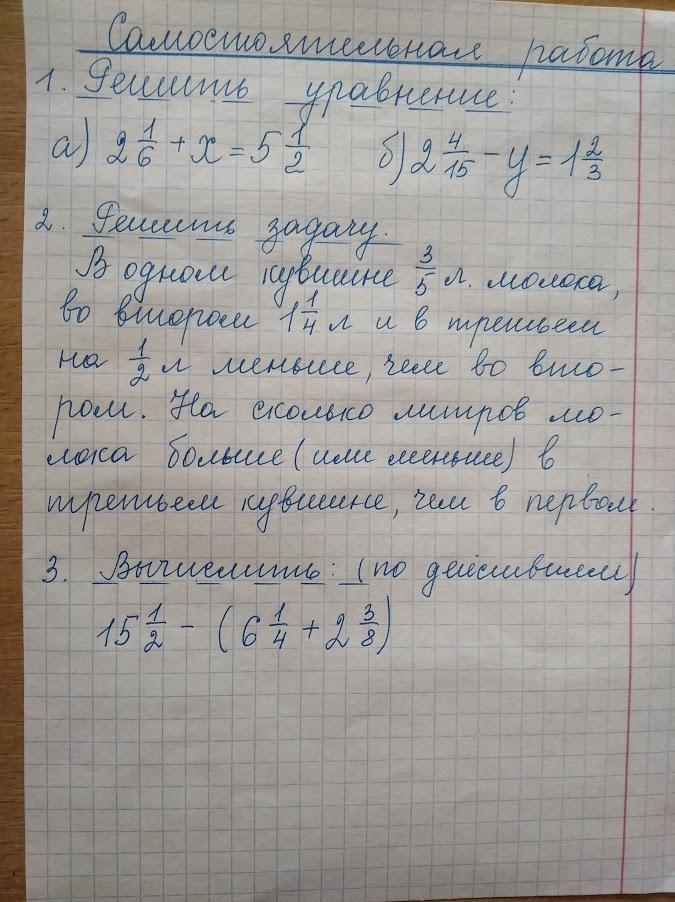 Самостоятельная работа
1. Решить уравнение:
а) 2 1/6 + x = 5 1/2 б) 2 4/15 - y = 1 2/3
2. Решить задачу.
В одном кувшине 3/5 л. молока,
во втором 1 1/4 л и в третьем
на 1/2 л меньше, чем во вто-
ром. На сколько литров мо-
лока больше (или меньше) в
третьем кувшине, чем в первом.
3. Вычислить: (по действиям)
15 1/2 - (6 1/4 + 2 3/8)